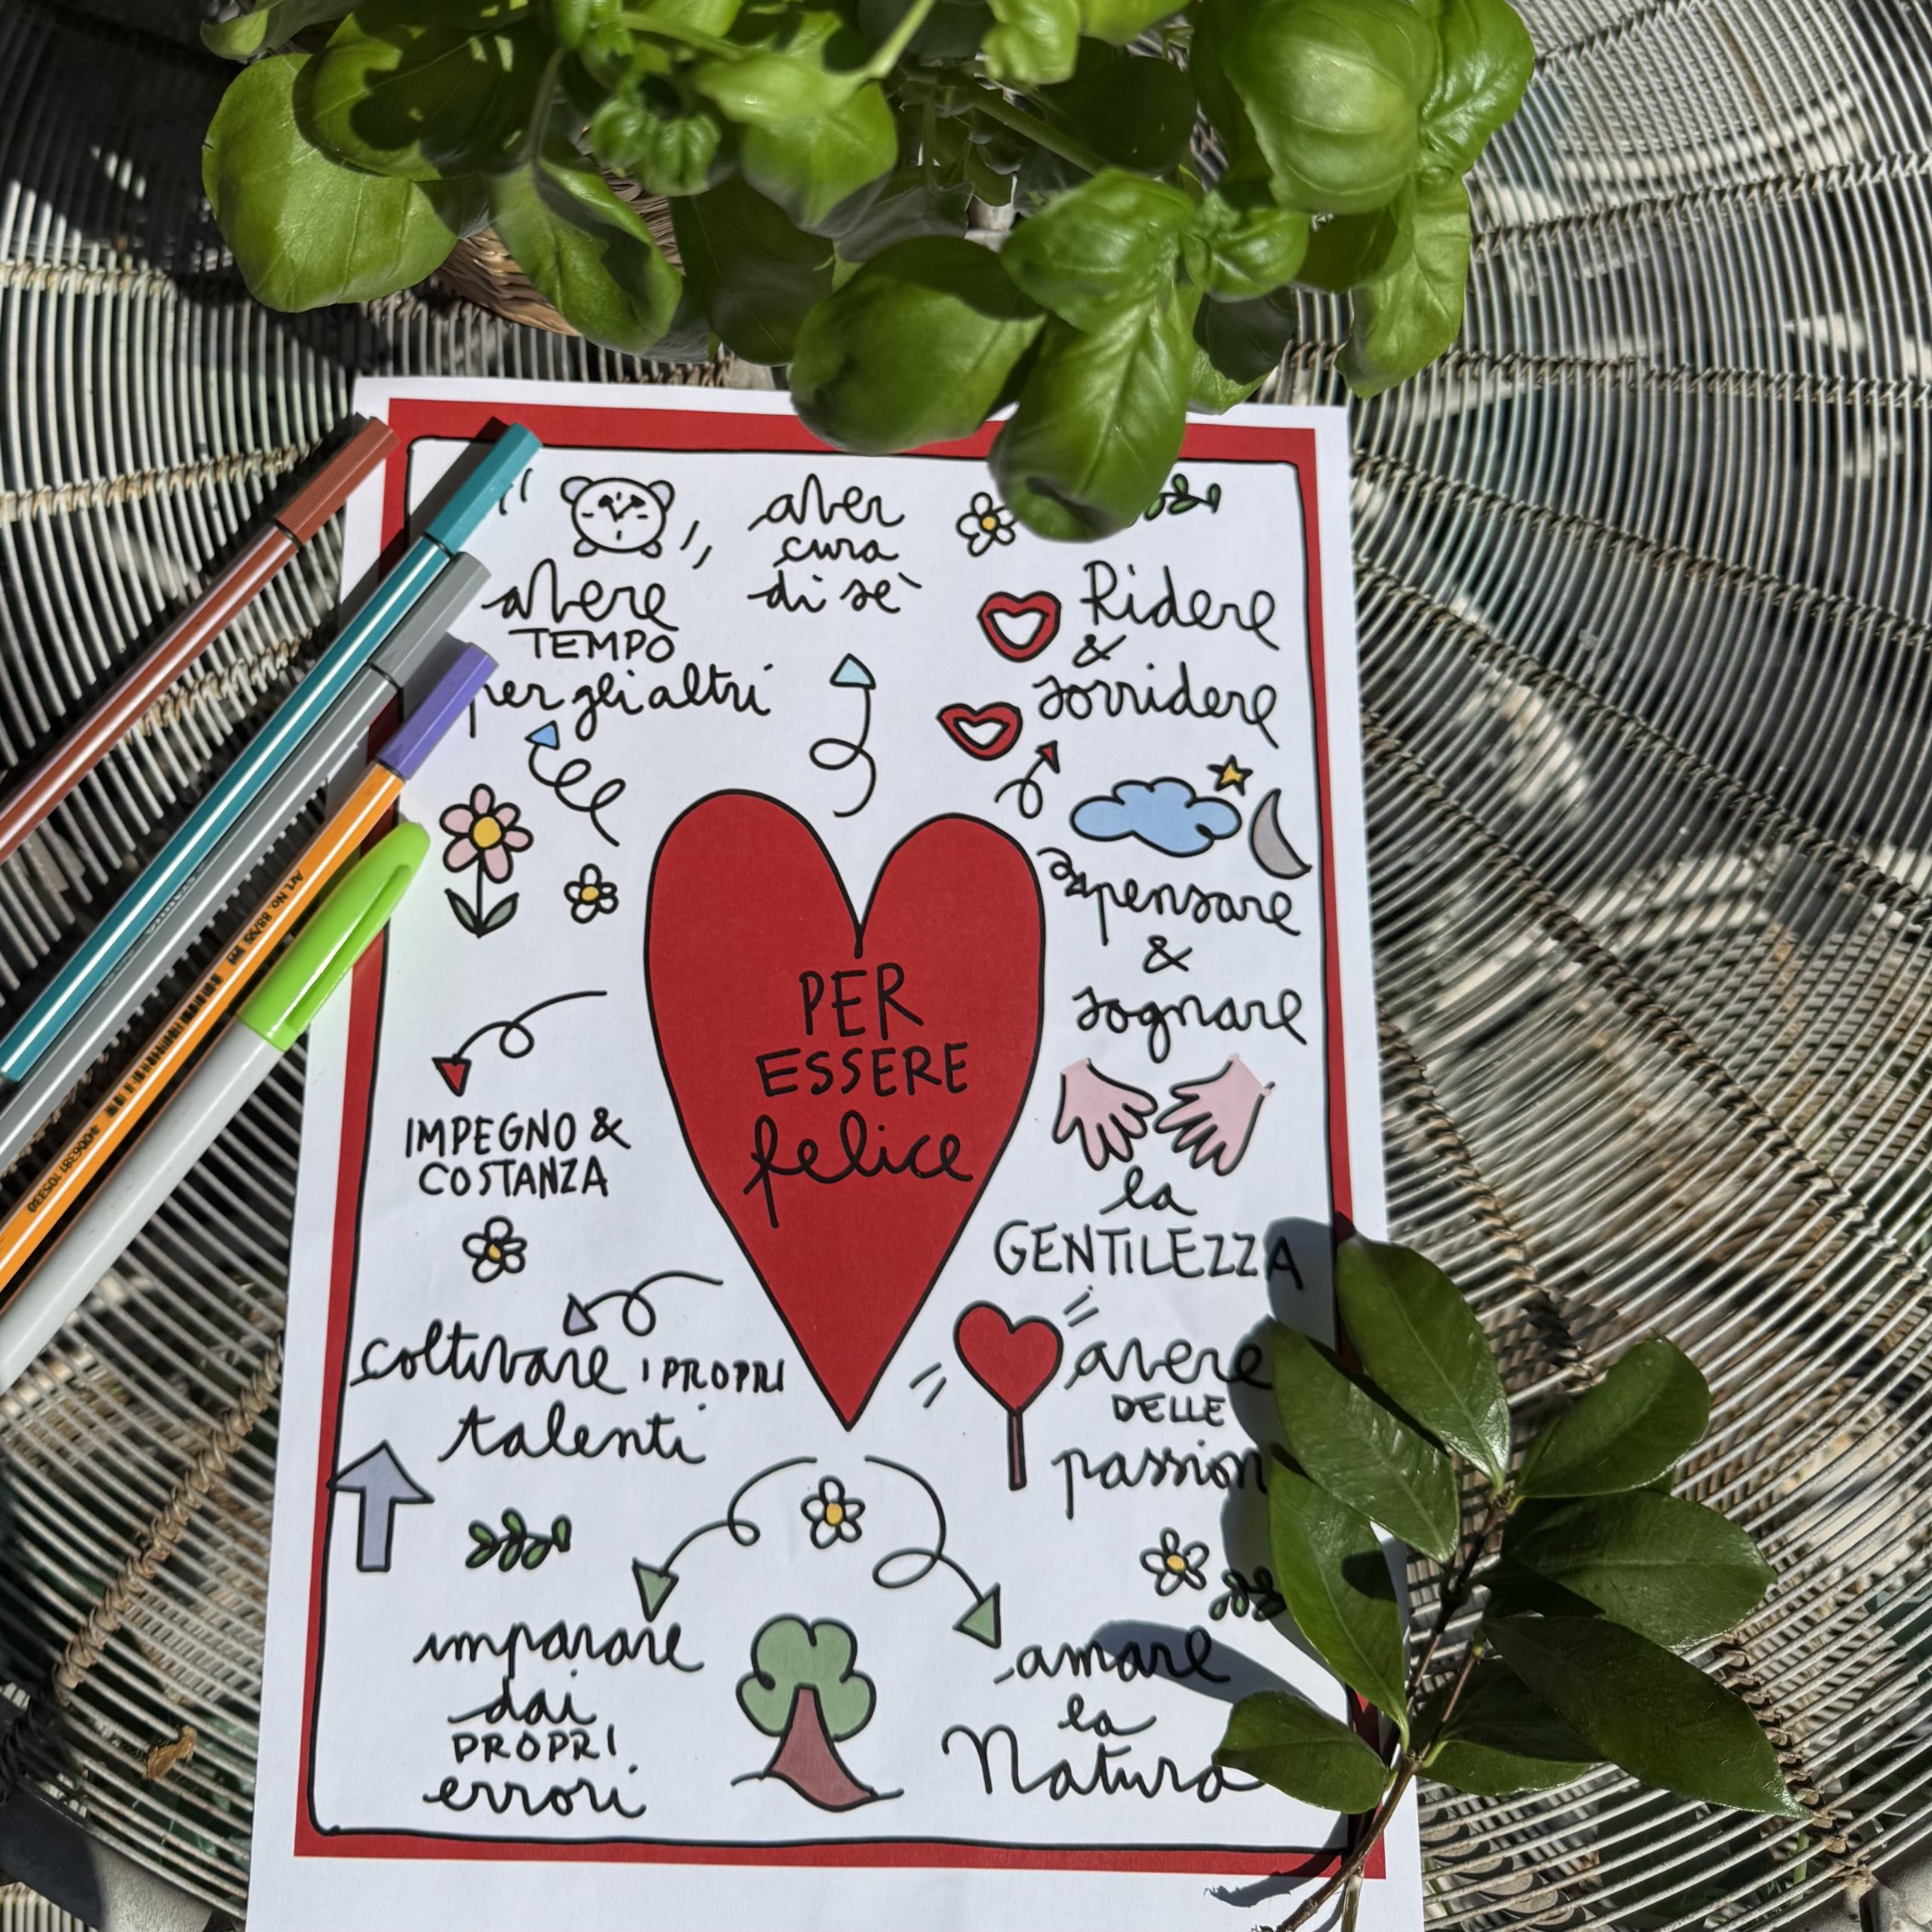 avere
TEMPO
per gli altri
aver
cura
di sè
Ridere
&
sorridere
pensare
&
sognare
PER
ESSERE
felice
IMPEGNO &
COSTANZA
la
GENTILEZZA
coltivare I PROPRI
talenti
avere
DELLE
passion
imparare
dai
PROPRI
errori
amare
la
Natura
Art. No. 88/55